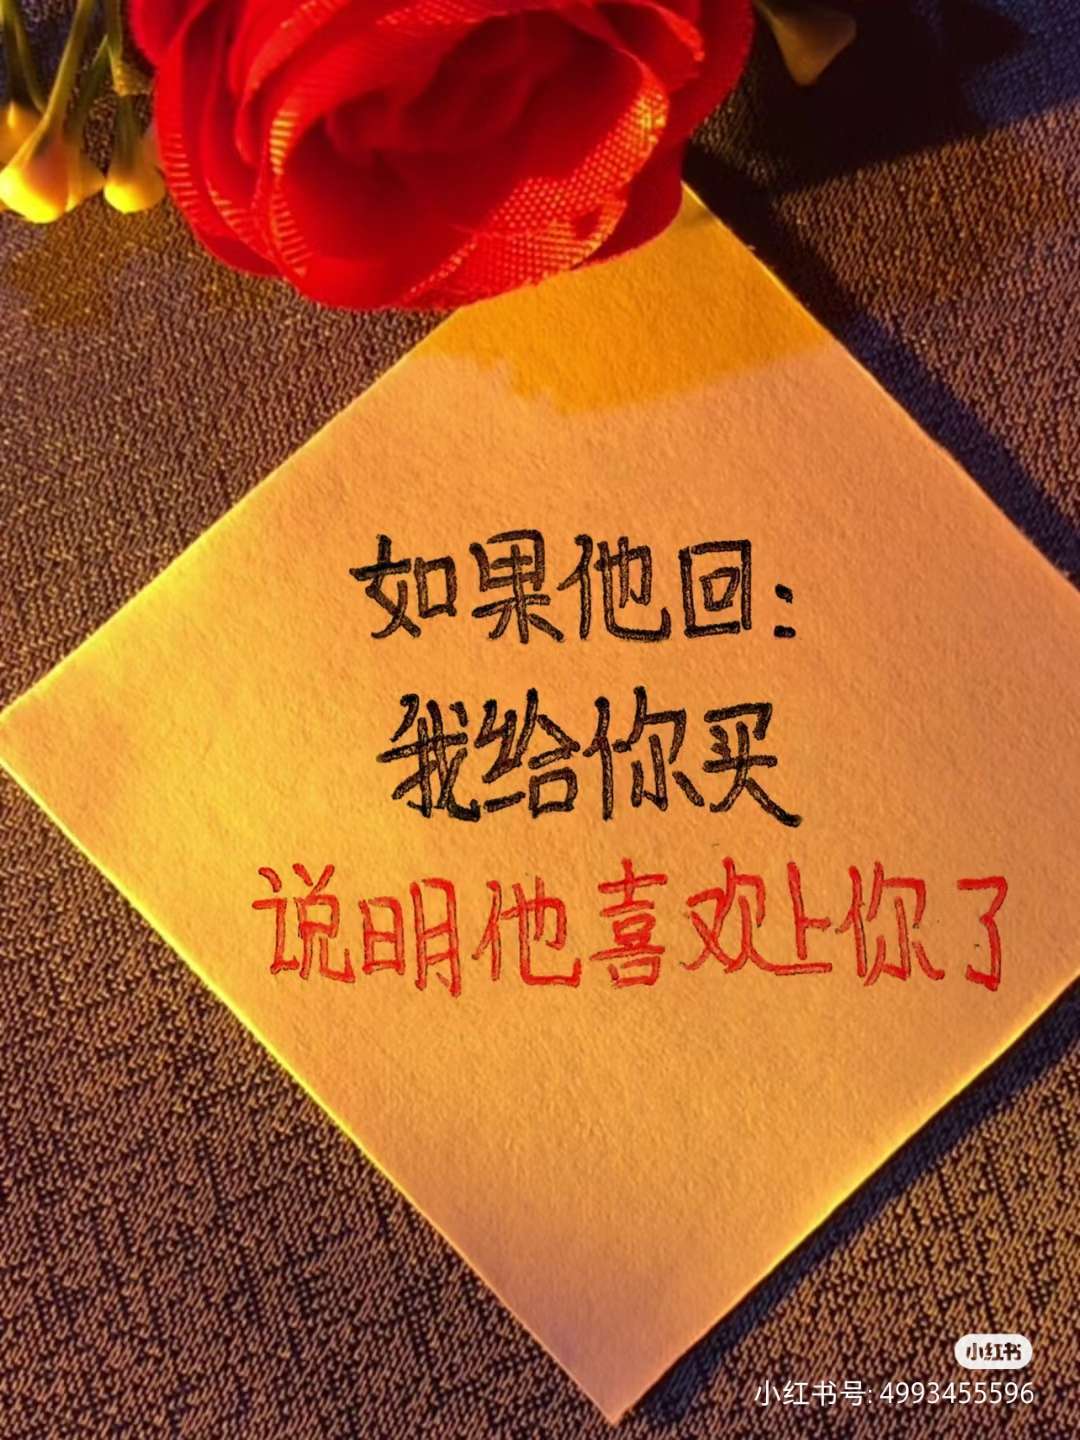 如果他回:
我给你买
说明他喜欢上你了
小红书
小红书号: 4993455596